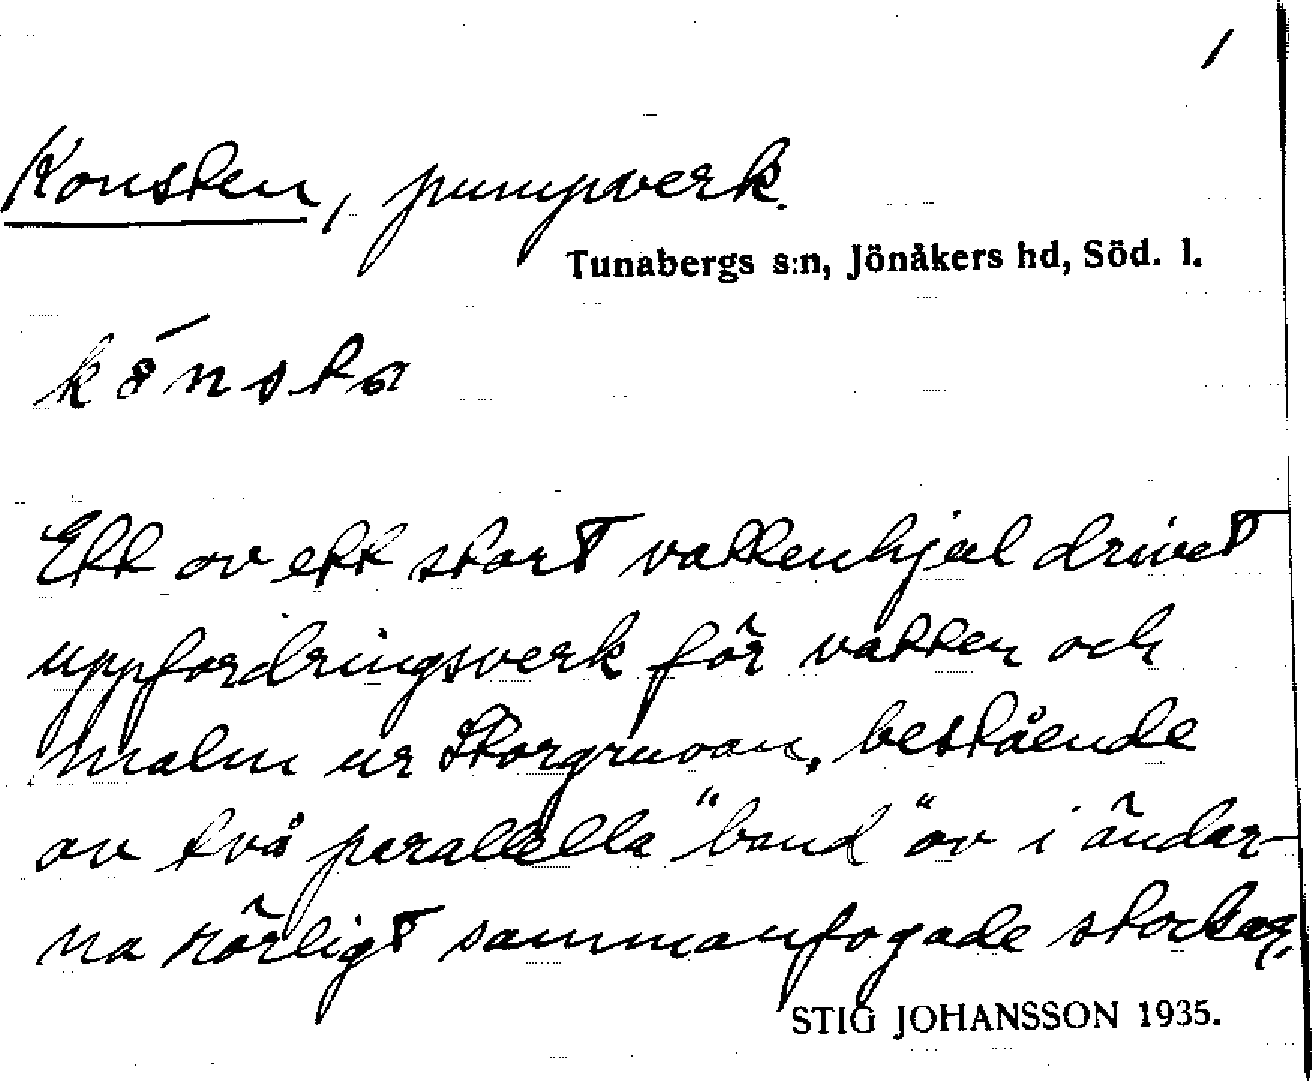 1
Konsten, pumpverk.
Tunabergs s:n, Jönåkers hd, Söd. l.
Ett av ett stort vattenhjul drivet
uppfordringsverk för vatten och
malm ur Storgruvan, bestående
av två parallella "band" av i ändar-
na rörligt sammanfogade stockar,
STIG JOHANSSON 1935.